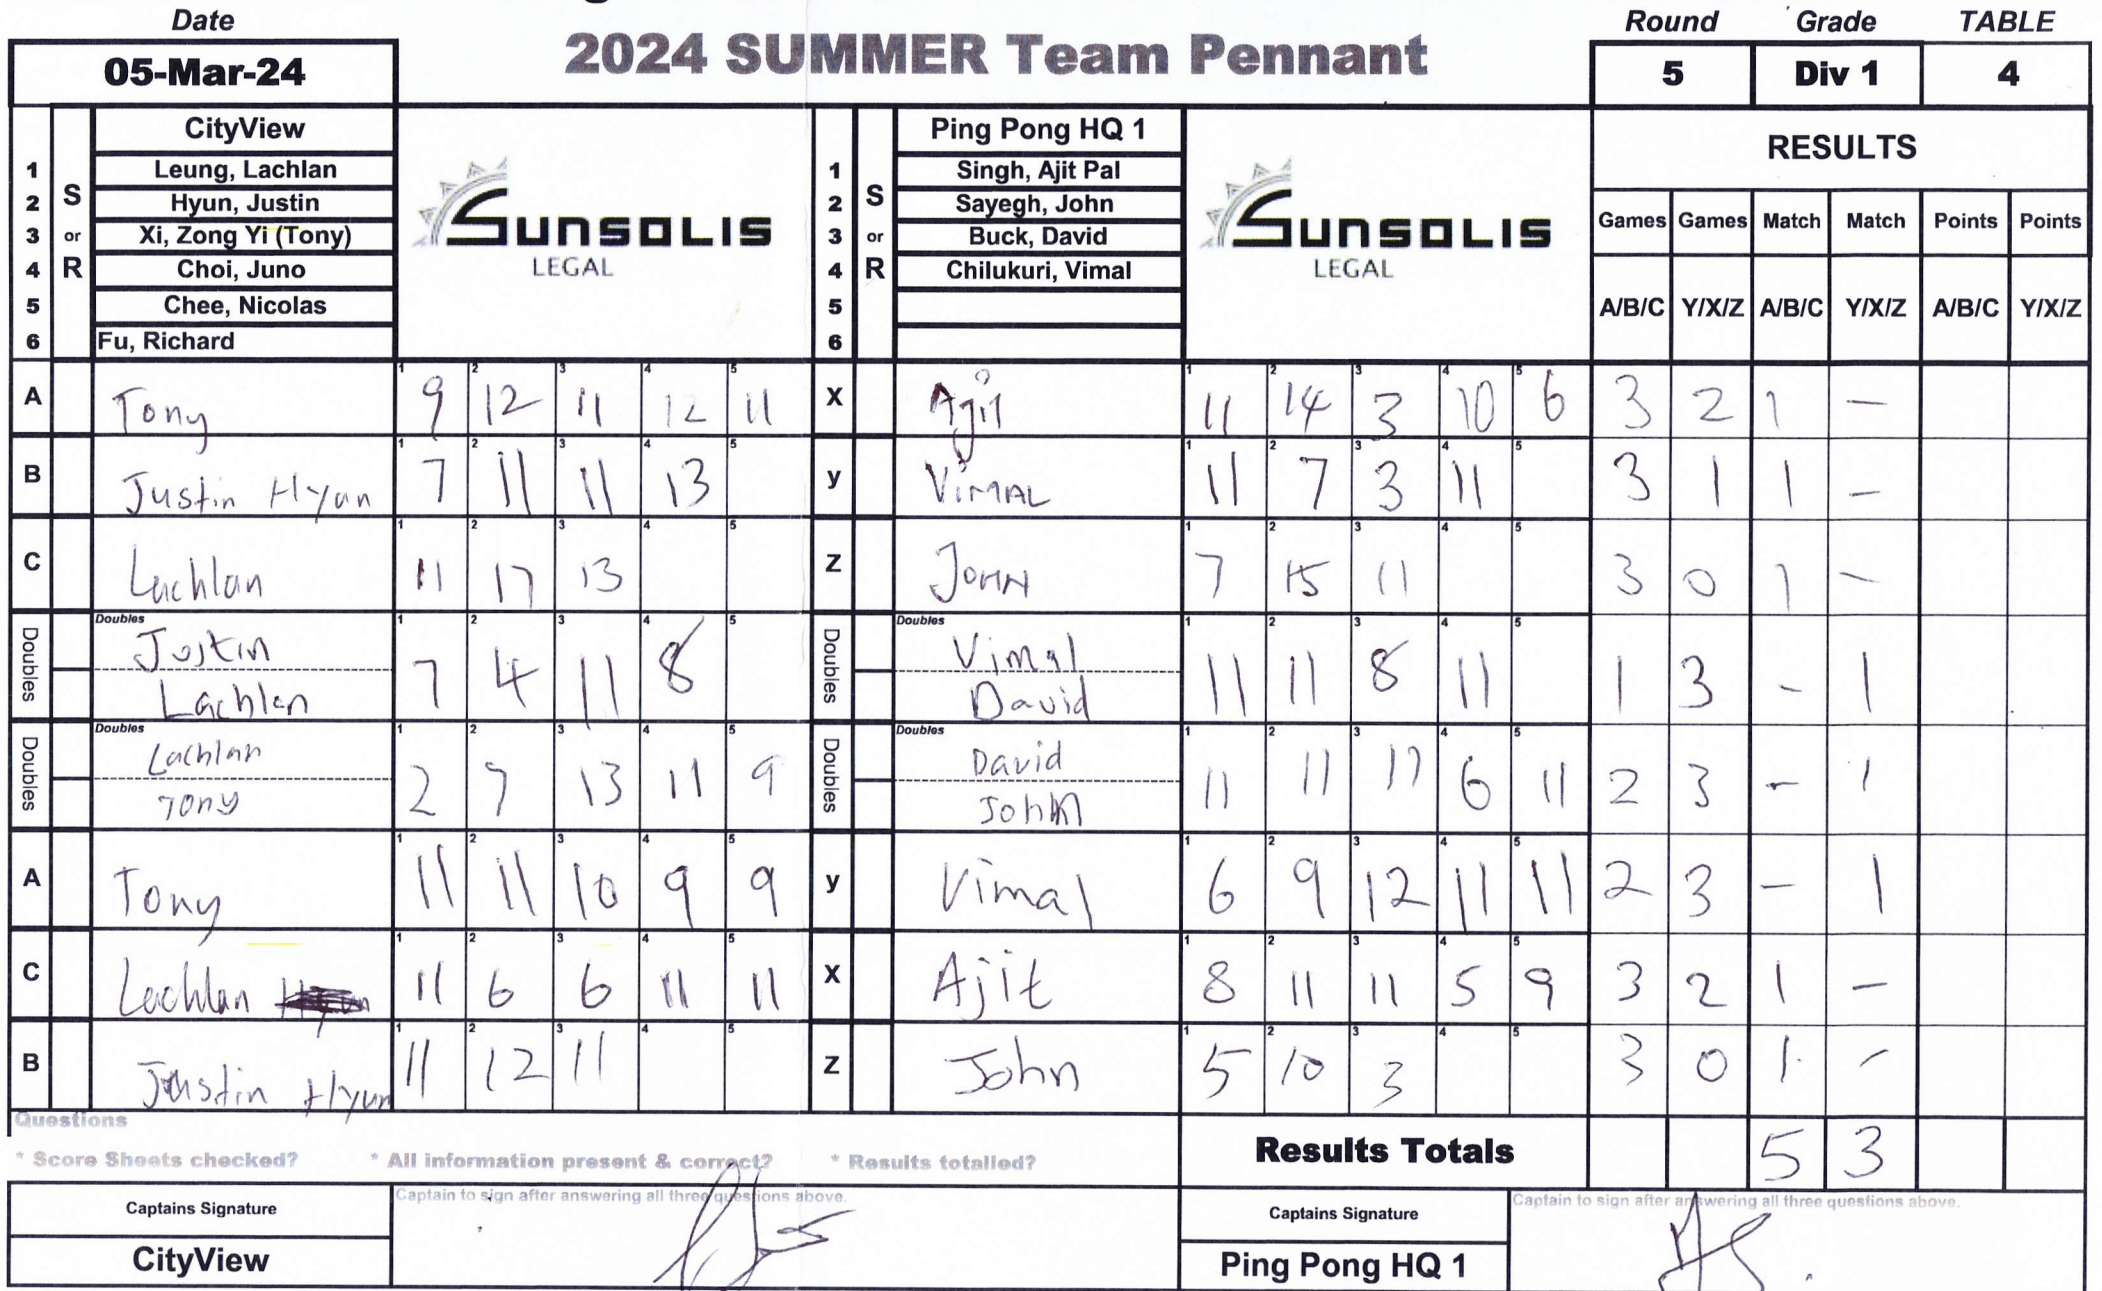 Date
2024 SUMMER Team Pennant
Round Grade TABLE
05-Mar-24
5 Div 1 4
CityView
Ping Pong HQ 1
RESULTS
1 Leung, Lachlan
2 Hyun, Justin
3 Xi, Zong Yi (Tony)
4 Choi, Juno
5 Chee, Nicolas
6 Fu, Richard
S or R
SUNSOLIS
LEGAL
1 Singh, Ajit Pal
2 Sayegh, John
3 Buck, David
4 Chilukuri, Vimal
5
6
S or R
SUNSOLIS
LEGAL
Games Games Match Match Points Points
A/B/C Y/X/Z A/B/C Y/X/Z A/B/C Y/X/Z
A Tony 9 12 11 12 11 X Ajit 11 14 3 10 6 3 2 1 –
B Justin Hyun 7 11 11 13 y VIMAL 11 7 3 11 3 1 1 –
C Lachlan 11 17 13 Z JOHN 7 15 11 3 0 1 –
Doubles Doubles Justin Lachlan 7 4 11 8 Doubles Doubles Vimal David 11 11 8 11 1 3 - 1
Doubles Doubles Lachlan Tony 2 7 13 11 9 Doubles Doubles David John 11 11 6 11 2 3 - 1
A Tony 11 11 10 9 9 y Vimal 6 9 12 11 11 2 3 – 1
C Lachlan 11 6 6 11 11 X Ajit 8 11 11 5 9 3 2 1 –
B Justin Hyun 11 12 11 Z John 5 10 3 3 0 1 -
Questions
* Score Sheets checked? * All information present & correct? * Results totalled?
Results Totals 5 3
Captains Signature
Captain to sign after answering all three questions above.
Captains Signature
Captain to sign after answering all three questions above.
CityView
Ping Pong HQ 1